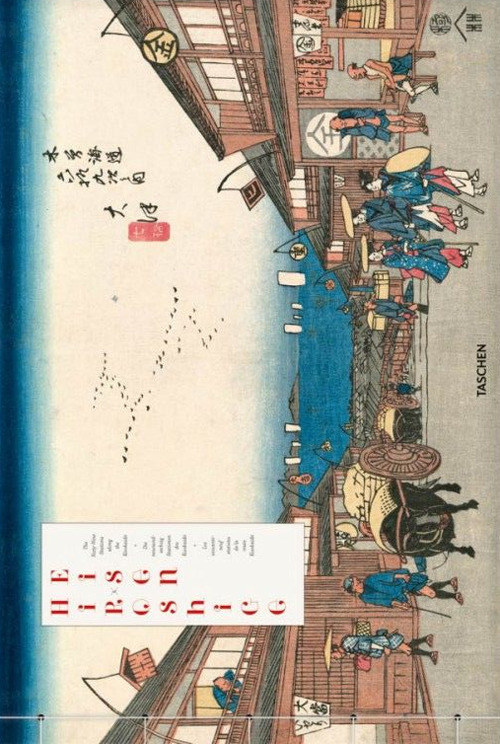 木曽海道
六拾九次之内
大津
HE
ii
R×s
oe
sn
h
i
g
e
The
Sixty-Nine
Stations
along
the
Kisokaido
•
Die
neunund-
sechzig
Stationen
des
Kisokaido
•
Les
soixante-
neuf
stations
de la
route
Kisokaido
TASCHEN
大當